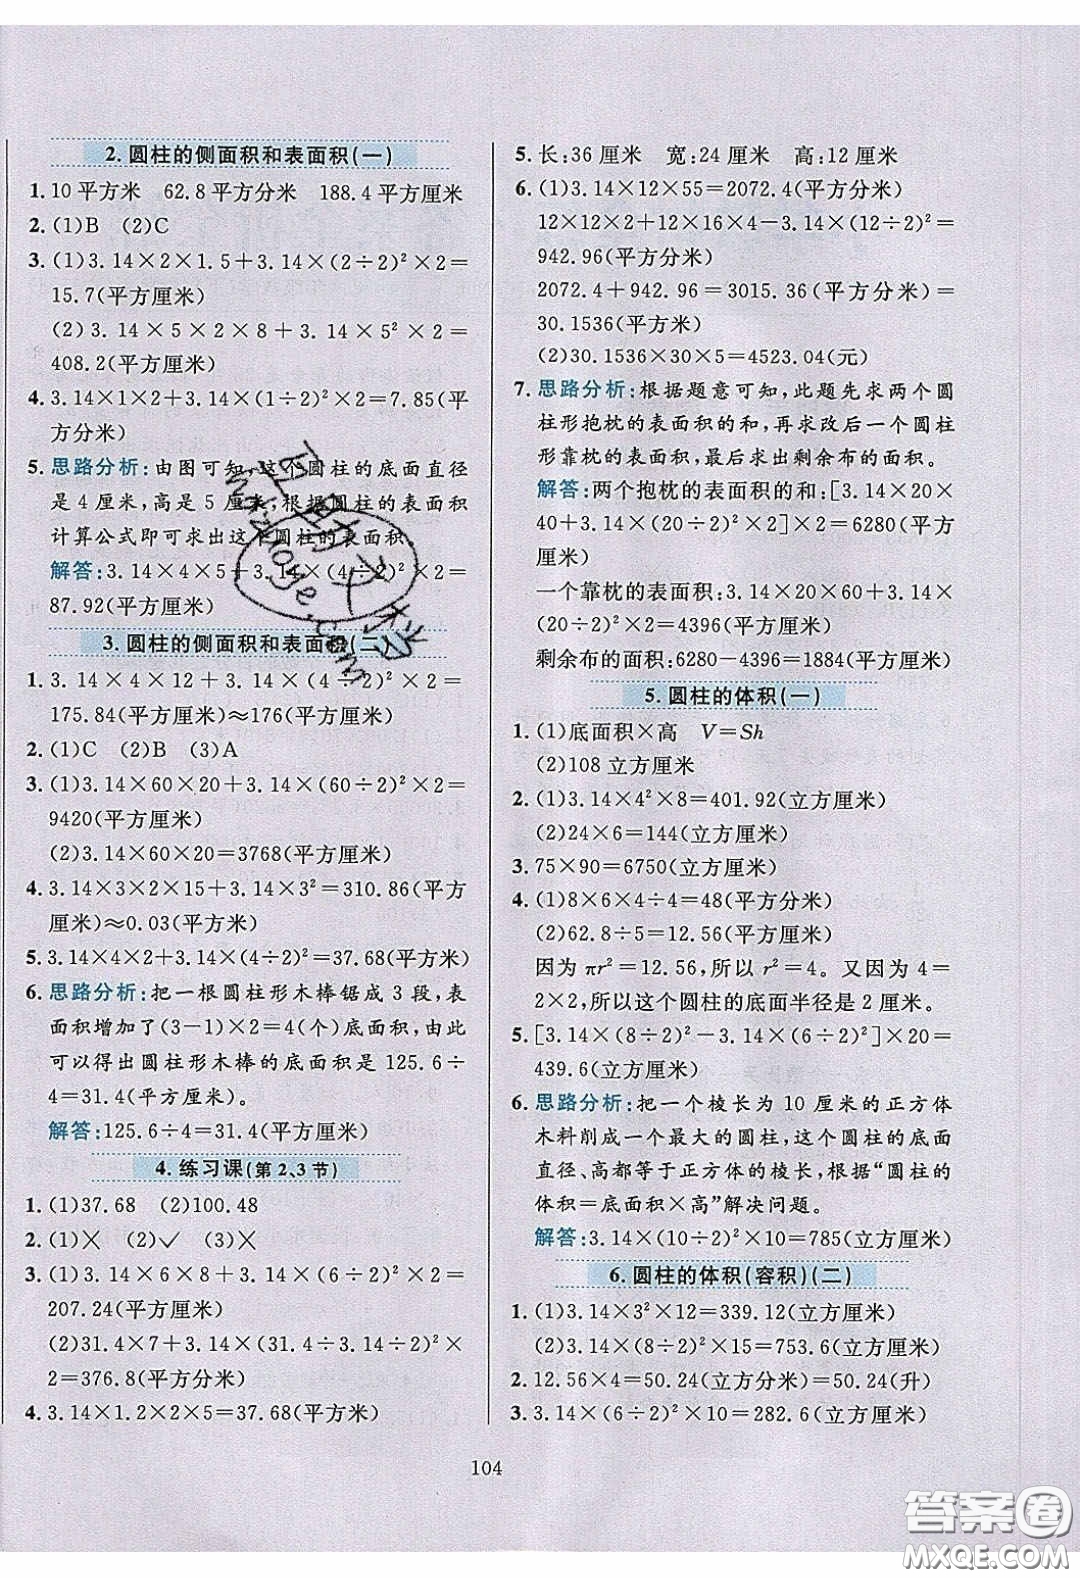 2. 圆柱的侧面积和表面积(一)
1. 10 平方米 62.8 平方分米 188.4 平方厘米
2. (1)B (2)C
3. (1)3.14×2×1.5+3.14×(2÷2)²×2=
15.7(平方厘米)
(2)3.14×5×2×8+3.14×5²×2=
408.2(平方厘米)
4. 3.14×1×2+3.14×(1÷2)²×2=7.85(平
方分米)
5. 思路分析:由图可知,这个圆柱的底面直径
是 4 厘米,高是 5 厘米,根据圆柱的表面积
计算公式即可求出这个圆柱的表面积
解答:3.14×4×5+3.14×(4÷2)²×2=
87.92(平方厘米)
3. 圆柱的侧面积和表面积(二)
1. 3.14×4×12+3.14×(4÷2)²×2=
175.84(平方厘米)≈176(平方厘米)
2. (1)C (2)B (3)A
3. (1)3.14×60×20+3.14×(60÷2)²×2=
9420(平方厘米)
(2)3.14×60×20=3768(平方厘米)
4. 3.14×3×2×15+3.14×3²=310.86(平方
厘米)≈0.03(平方米)
5. 3.14×4×2+3.14×(4÷2)²=37.68(平方米)
6. 思路分析:把一根圆柱形木棒锯成 3 段,表
面积增加了(3-1)×2=4(个)底面积,由此
可以得出圆柱形木棒的底面积是 125.6÷
4=31.4(平方厘米)。
解答:125.6÷4=31.4(平方厘米)
4. 练习课(第 2、3 节)
1. (1)37.68 (2)100.48
2. (1)× (2)✓ (3)×
3. (1)3.14×6×8+3.14×(6÷2)²×2=
207.24(平方厘米)
(2)31.4×7+3.14×(31.4÷3.14÷2)²×
2=376.8(平方分米)
4. 3.14×1.2×2×5=37.68(平方米)
5. 长:36 厘米 宽:24 厘米 高:12 厘米
6. (1)3.14×12×55=2072.4(平方分米)
12×12×2+12×16×4-3.14×(12÷2)²=
942.96(平方分米)
2072.4+942.96=3015.36(平方分米)=
30.1536(平方米)
(2)30.1536×30×5=4523.04(元)
7. 思路分析:根据题意可知,此题先求两个圆
柱形抱枕的表面积的和,再求改后一个圆柱
形靠枕的表面积,最后求出剩余布的面积。
解答:两个抱枕的表面积的和:[3.14×20×
40+3.14×(20÷2)²×2]×2=6280(平方
厘米)
一个靠枕的表面积:3.14×20×60+3.14×
(20÷2)²×2=4396(平方厘米)
剩余布的面积:6280-4396=1884(平方厘米)
5. 圆柱的体积(一)
1. (1)底面积×高 V=Sh
(2)108 立方厘米
2. (1)3.14×4²×8=401.92(立方厘米)
(2)24×6=144(立方厘米)
3. 75×90=6750(立方厘米)
4. (1)8×6×4÷4=48(平方分米)
(2)62.8÷5=12.56(平方厘米)
因为 πr²=12.56,所以 r²=4。又因为 4=
2×2,所以这个圆柱的底面半径是 2 厘米。
5. [3.14×(8÷2)²-3.14×(6÷2)²]×20=
439.6(立方厘米)
6. 思路分析:把一个棱长为 10 厘米的正方体
木料削成一个最大的圆柱,这个圆柱的底面
直径、高都等于正方体的棱长,根据“圆柱的
体积=底面积×高”解决问题。
解答:3.14×(10÷2)²×10=785(立方厘米)
6. 圆柱的体积(容积)(二)
1. (1)3.14×3²×12=339.12(立方厘米)
(2)3.14×(8÷2)²×15=753.6(立方厘米)
2. 12.56×4=50.24(立方分米)=50.24(升)
3. 3.14×(6÷2)²×10=282.6(立方分米)
104
答案圈
MXQE.COM